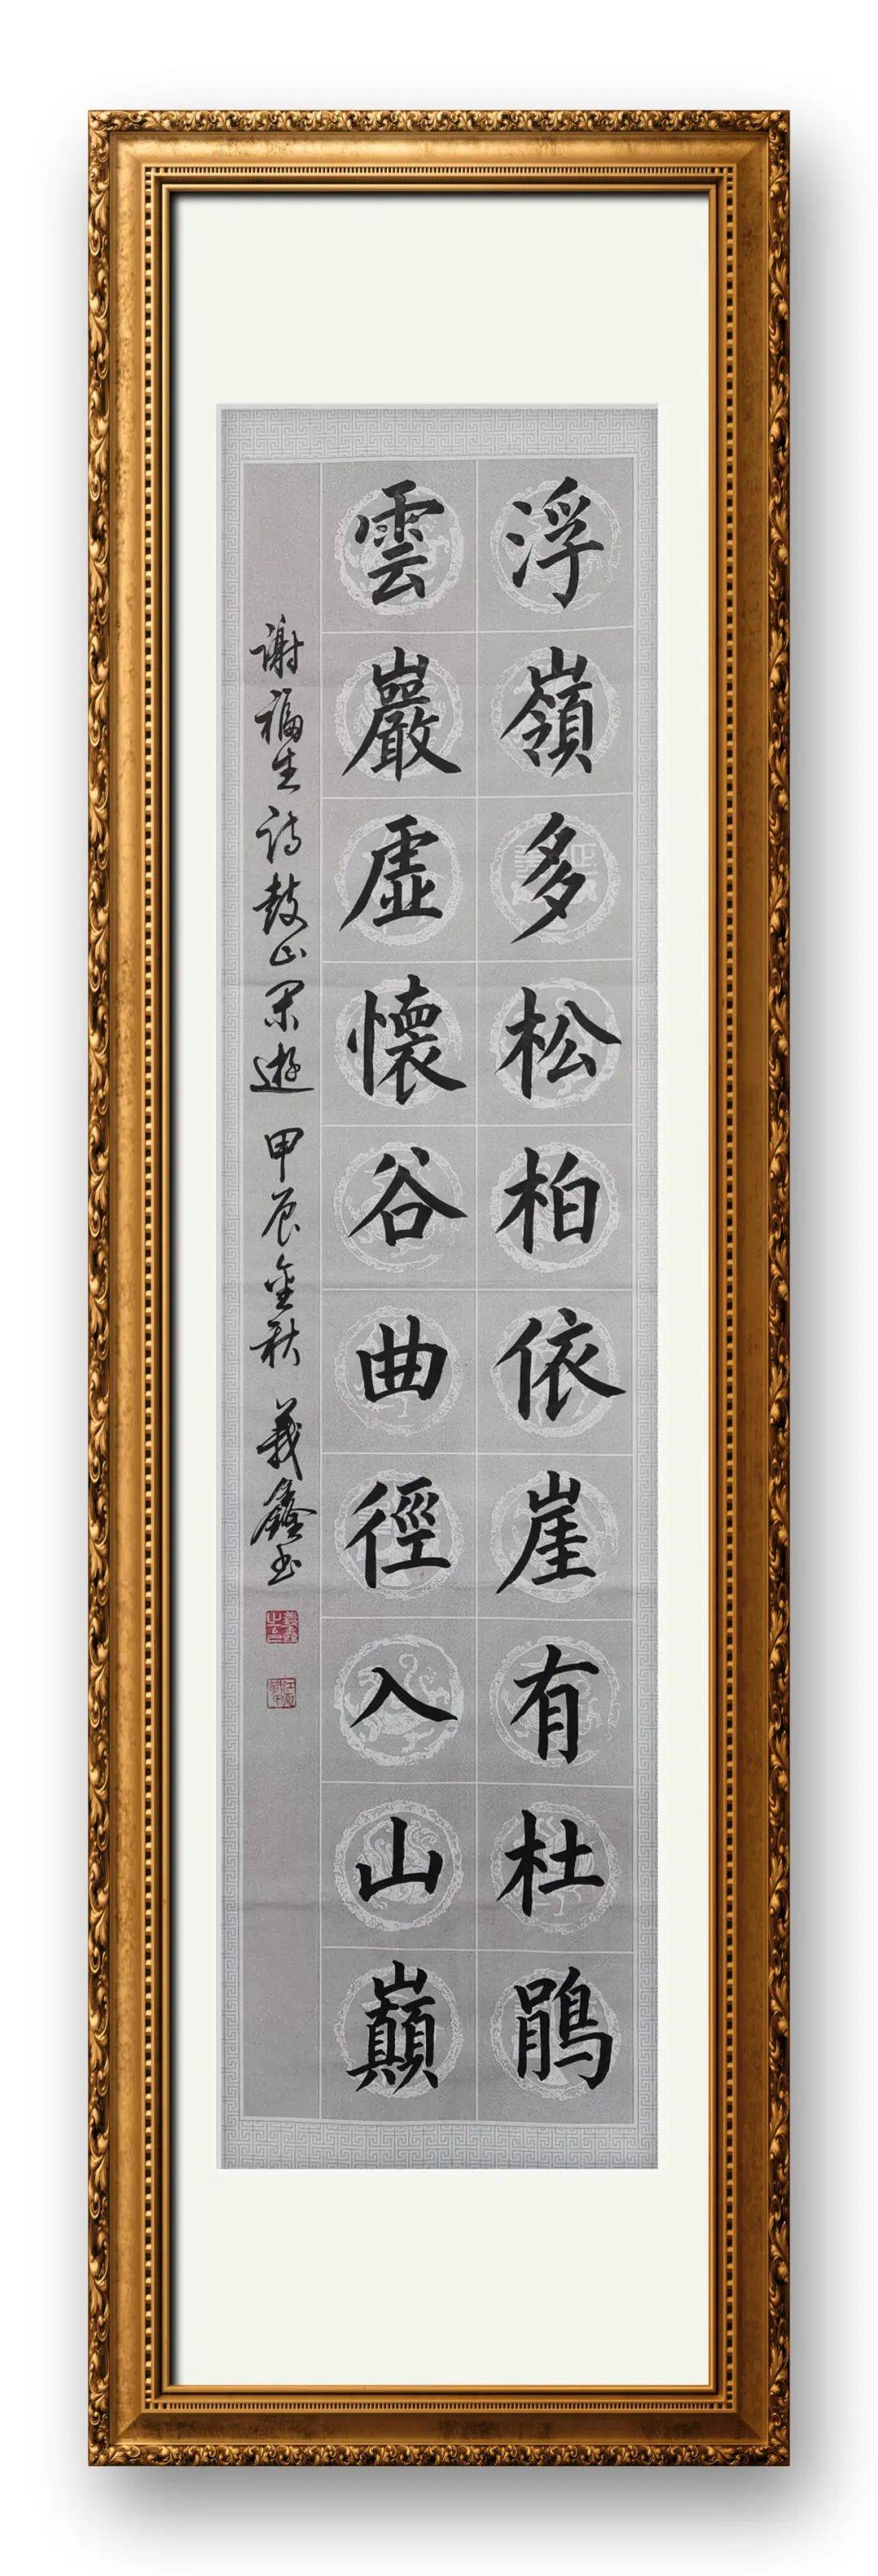 浮嶺多松柏依崖有杜鵑
雲巖虛懷谷曲徑入山巔
謝福生詩鼓山閑遊 甲辰金秋 義鑫书